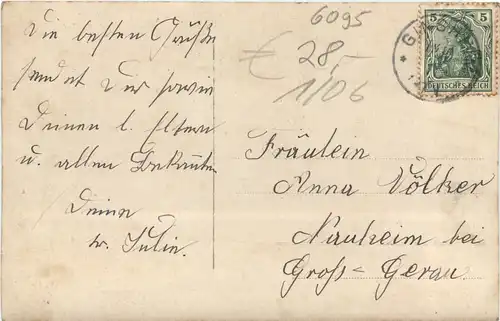 Die besten Grüße
sendet Dir sowie
Deinen l. Eltern
u. allen Bekannten
Deine
tr. Julie.
6095
€ 28,-
1/06
5 5
DEUTSCHES REICH
Fräulein
Anna Völker
Nauheim bei
Groß-Gerau.